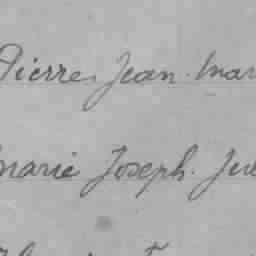 Pierre Jean mar
marie Joseph. Ju